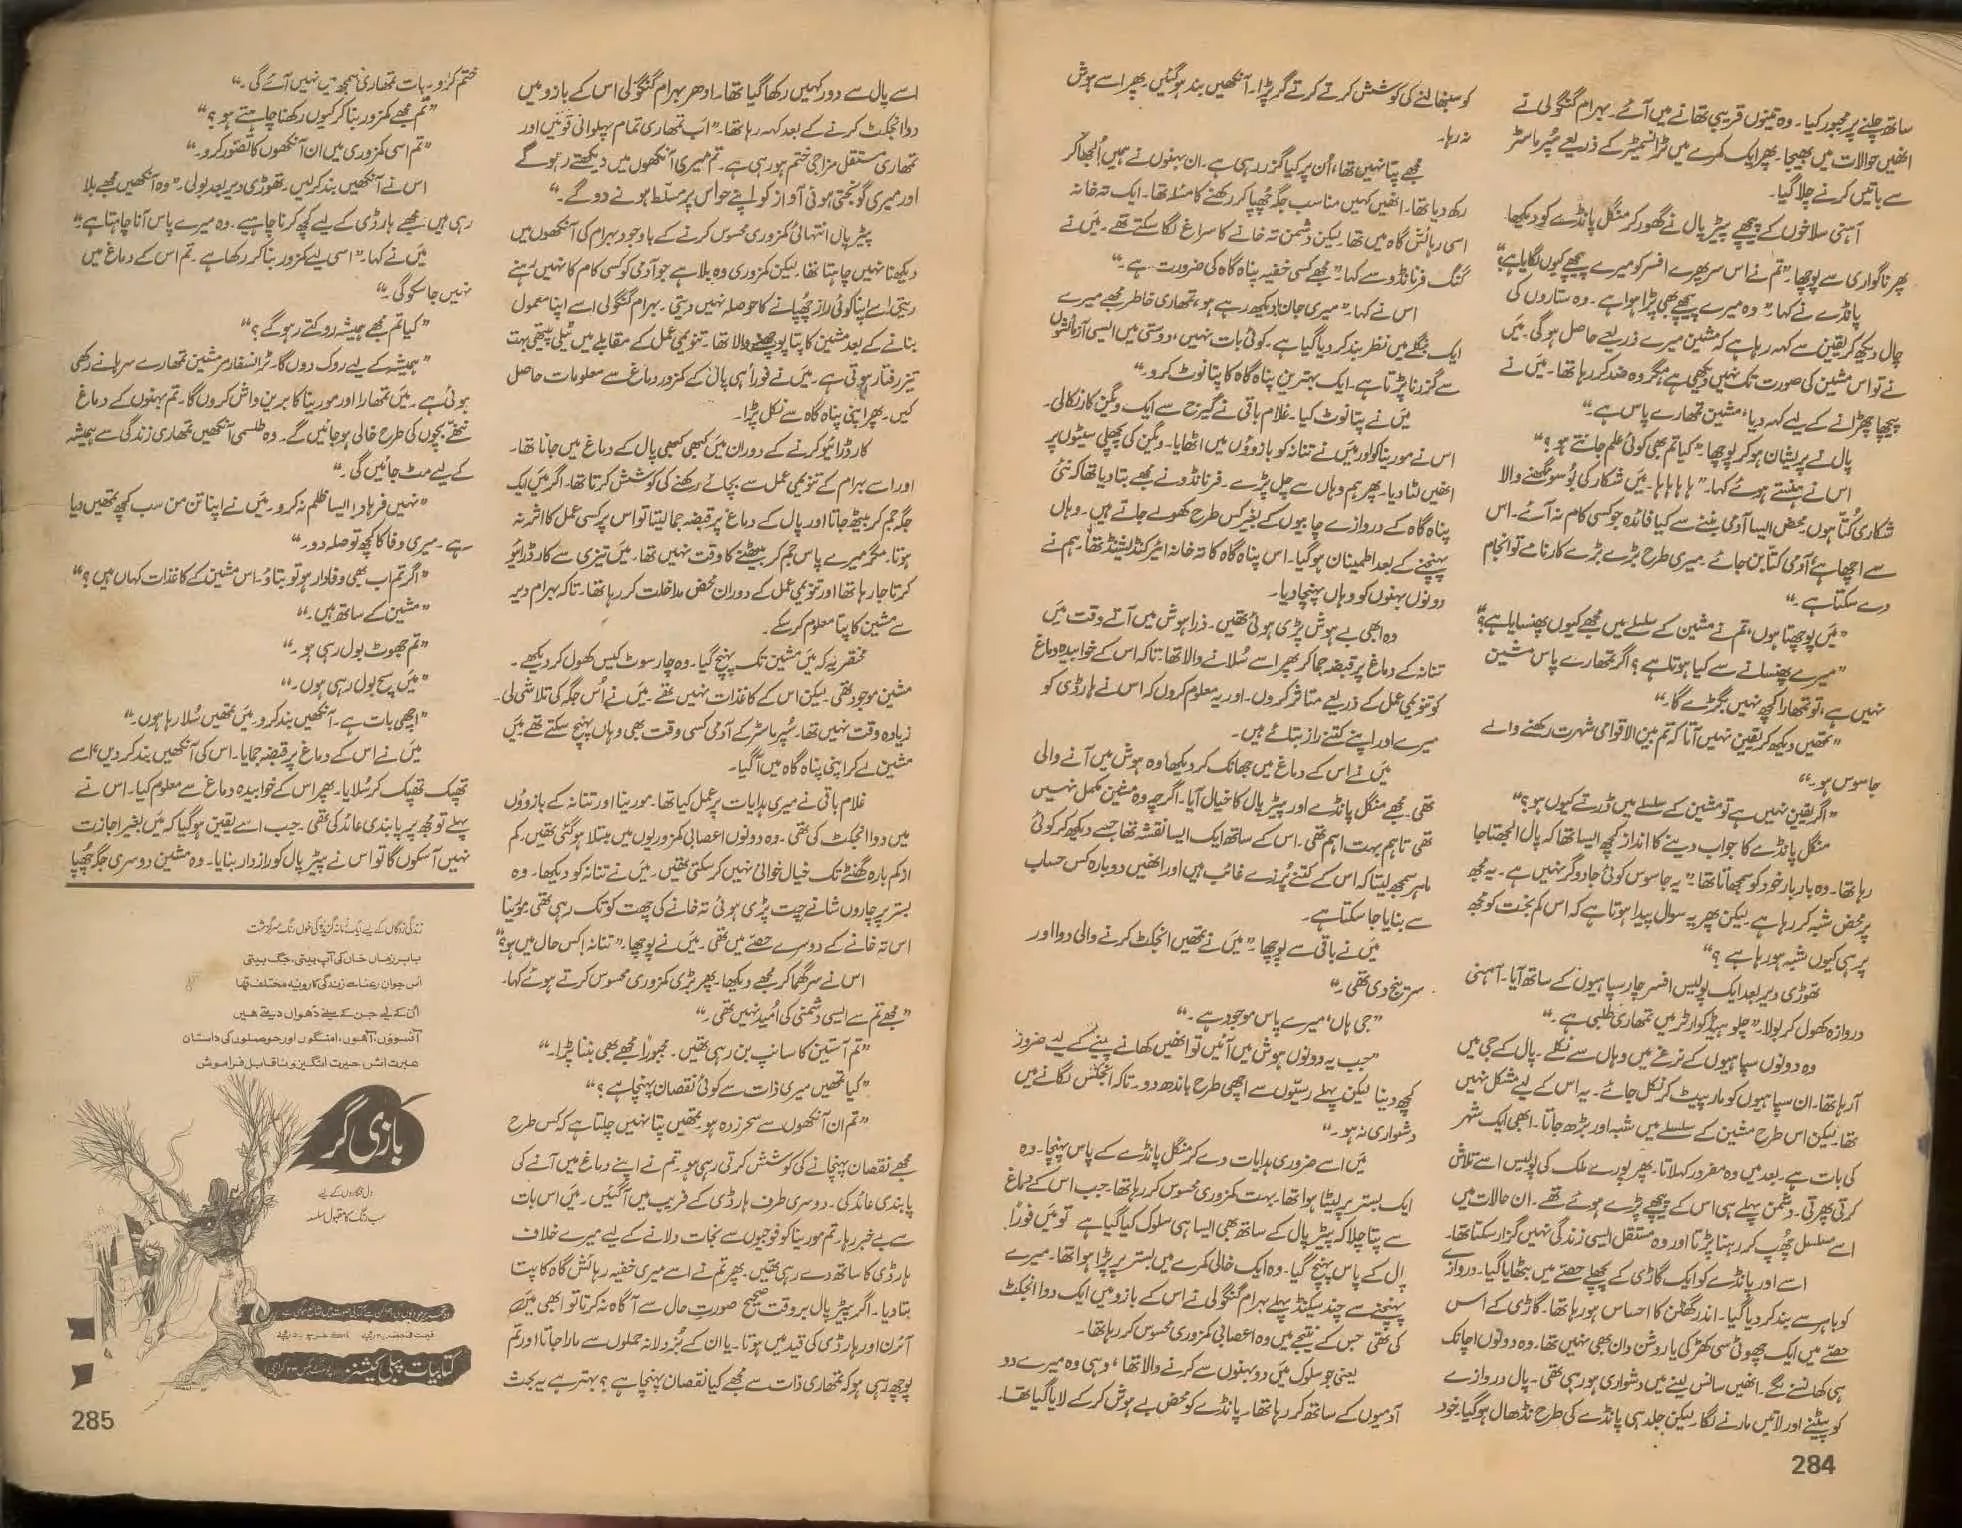 ساتھ چلنے پر مجبور کیا۔ وہ تینوں قریبی تھانے میں آئے۔ بہرام گنگولی نے
انھیں حوالات میں بھیجا۔ پھر ایک کمرے میں ٹرانسمیٹر کے ذریعے سُپر ماسٹر
سے باتیں کرنے چلا گیا۔
آہنی سلاخوں کے پیچھے پیٹر پال نے گھور کر منگل پانڈے کو دیکھا
پھر ناگواری سے پوچھا۔ ”تم نے اس سر پھرے افسر کو میرے پیچھے کیوں لگایا ہے؟“
پانڈے نے کہا۔ ”وہ میرے پیچھے بھی پڑا ہوا ہے۔ وہ ستاروں کی
چال دیکھ کر یقین سے کہہ رہا ہے کہ مشین میرے ذریعے حاصل ہو گی۔ میں
نے تو اس مشین کی صورت تک نہیں دیکھی ہے، مگر وہ ضد کر رہا تھا۔ میں نے
پیچھا چھڑانے کے لیے کہہ دیا، مشین تمھارے پاس ہے۔“
پال نے پریشان ہو کر پوچھا۔ ”کیا تم بھی کوئی علم جانتے ہو؟“
اس نے ہنستے ہوئے کہا۔ ”ہاہاہاہا۔ میں شکار کی بُو سونگھنے والا
شکاری کُتا ہوں۔ محض ایسا آدمی بننے سے کیا فائدہ جو کسی کام نہ آئے۔ اس
سے اچھا ہے آدمی کتا بن جائے۔ میری طرح بڑے بڑے کارنامے تو انجام
دے سکتا ہے۔“
”میں پوچھتا ہوں، تم نے مشین کے سلسلے میں مجھے کیوں پھنسایا ہے؟“
”میرے پھنسانے سے کیا ہوتا ہے؟ اگر تمھارے پاس مشین
نہیں ہے، تو تمھارا کچھ نہیں بگڑے گا۔“
”تمھیں دیکھ کر یقین نہیں آتا کہ تم بین الاقوامی شہرت رکھنے والے
جاسوس ہو۔“
”اگر یقین نہیں ہے تو مشین کے سلسلے میں ڈرتے کیوں ہو؟“
منگل پانڈے کا جواب دینے کا انداز کچھ ایسا تھا کہ پال الجھتا جا
رہا تھا۔ وہ بار بار خود کو سمجھاتا تھا۔ ”یہ جاسوس کوئی جادوگر نہیں ہے۔ یہ مجھ
پر محض شبہ کر رہا ہے۔ لیکن پھر یہ سوال پیدا ہوتا ہے کہ اس کم بخت کو مجھ
پر ہی کیوں شبہ ہو رہا ہے؟“
تھوڑی دیر بعد ایک پولیس افسر چار سپاہیوں کے ساتھ آیا۔ آہنی
دروازہ کھول کر بولا۔ ”چلو ہیڈ کوارٹر میں تمھاری طلبی ہے۔“
وہ دونوں سپاہیوں کے نرغے میں وہاں سے نکلے۔ پال کے جی میں
آ رہا تھا۔ ان سپاہیوں کو مار پیٹ کر نکل جائے۔ یہ اس کے لیے مشکل نہیں
تھا۔ لیکن اس طرح مشین کے سلسلے میں شبہ اور بڑھ جاتا۔ ابھی ایک شہر
کی بات ہے۔ بعد میں وہ مفرور کہلاتا۔ پھر پورے ملک کی پولیس اسے تلاش
کرتی پھرتی۔ دشمن پہلے ہی اس کے پیچھے پڑے ہوئے تھے۔ ان حالات میں
اسے مسلسل چُھپ کر رہنا پڑتا اور وہ مستقل ایسی زندگی نہیں گزار سکتا تھا۔
اسے اور پانڈے کو ایک گاڑی کے پچھلے حصّے میں بٹھایا گیا۔ دروازے
کو باہر سے بند کر دیا گیا۔ اندر گھٹن کا احساس ہو رہا تھا۔ گاڑی کے اس
حصّے میں ایک چھوٹی سی کھڑکی یا روشن دان بھی نہیں تھا۔ وہ دونوں اچانک
ہی کھانسنے لگے۔ انھیں سانس لینے میں دشواری ہو رہی تھی۔ پال دروازے
کو پیٹنے اور لاتیں مارنے لگا۔ لیکن جلد ہی پانڈے کی طرح نڈھال ہو گیا۔ خود
کو سنبھالنے کی کوشش کرتے کرتے گر پڑا۔ آنکھیں بند ہو گئیں۔ پھر اسے ہوش
نہ رہا۔
مجھے پتا نہیں تھا، اُن پر کیا گزر رہی ہے۔ ان بہنوں نے ہمیں اُلجھا کر
رکھ دیا تھا۔ انھیں کہیں مناسب جگہ چُھپا کر رکھنے کا مسئلہ تھا۔ ایک تہ خانہ
اسی رہائش گاہ میں تھا۔ لیکن دشمن تہ خانے کا سراغ لگا سکتے تھے۔ میں نے
کنگ فرنانڈو سے کہا۔ ”مجھے کسی خفیہ پناہ گاہ کی ضرورت ہے۔“
اس نے کہا۔ ”میری جان! دیکھ رہے ہو، تمھاری خاطر مجھے میرے
ایک بنگلے میں نظر بند کر دیا گیا ہے۔ کوئی بات نہیں، دوستی میں ایسی آزمائشوں
سے گزرنا پڑتا ہے۔ ایک بہترین پناہ گاہ کا پتا نوٹ کرو۔“
میں نے پتا نوٹ کیا۔ غلام باقی نے گیرج سے ایک ویگن کار نکالی۔
اس نے مورینا کو اور میں نے تنانہ کو بازوؤں میں اٹھایا۔ ویگن کی پچھلی سیٹوں پر
انھیں لٹا دیا۔ پھر ہم وہاں سے چل پڑے۔ فرنانڈو نے مجھے بتا دیا تھا کہ نئی
پناہ گاہ کے دروازے چابیوں کے بغیر کس طرح کھولے جاتے ہیں۔ وہاں
پہنچنے کے بعد اطمینان ہو گیا۔ اس پناہ گاہ کا تہ خانہ ایئر کنڈیشنڈ تھا۔ ہم نے
دونوں بہنوں کو وہاں پہنچا دیا۔
وہ ابھی بے ہوش پڑی ہوئی تھیں۔ ذرا ہوش میں آتے وقت میں
تنانہ کے دماغ پر قبضہ جما کر پھر اسے سُلانے والا تھا۔ تاکہ اس کے خوابیدہ دماغ
کو تنویمی عمل کے ذریعے متاثر کروں۔ اور یہ معلوم کروں کہ اس نے ہارڈی کو
میرے اور اپنے کتنے راز بتائے ہیں۔
میں نے اس کے دماغ میں جھانک کر دیکھا، وہ ہوش میں آنے والی
تھی۔ مجھے منگل پانڈے اور پیٹر پال کا خیال آیا۔ اگرچہ وہ مشین مکمل نہیں
تھی تاہم بہت اہم تھی۔ اس کے ساتھ ایک ایسا نقشہ تھا جسے دیکھ کر کوئی
ماہر سمجھ لیتا کہ اس کے کتنے پُرزے غائب ہیں اور انھیں دوبارہ کس حساب
سے بنایا جا سکتا ہے۔
میں نے باقی سے پوچھا۔ ”میں نے تمھیں انجکٹ کرنے والی دوا اور
سرینج دی تھی۔“
”جی ہاں، میرے پاس موجود ہے۔“
”جب یہ دونوں ہوش میں آئیں تو انھیں کھانے پینے کے لیے ضرور
کچھ دینا لیکن پہلے رسّیوں سے اچھی طرح باندھ دو۔ تاکہ انجکشن لگانے میں
دشواری نہ ہو۔“
میں اسے ضروری ہدایات دے کر منگل پانڈے کے پاس پہنچا۔ وہ
ایک بستر پر لیٹا ہوا تھا۔ بہت کمزوری محسوس کر رہا تھا۔ جب اس کے دماغ
سے پتا چلا کہ پیٹر پال کے ساتھ بھی ایسا ہی سلوک کیا گیا ہے تو میں فوراً
پال کے پاس پہنچ گیا۔ وہ ایک خالی کمرے میں بستر پر پڑا ہوا تھا۔ میرے
پہنچنے سے چند سیکنڈ پہلے بہرام گنگولی نے اس کے بازو میں ایک دوا انجکٹ
کی تھی جس کے نتیجے میں وہ اعصابی کمزوری محسوس کر رہا تھا۔
یعنی جو سلوک میں دو بہنوں سے کرنے والا تھا، وہی وہ میرے دو
آدمیوں کے ساتھ کر رہا تھا۔ پانڈے کو محض بے ہوش کر کے لایا گیا تھا۔
284
اسے پال سے دور کہیں رکھا گیا تھا۔ ادھر بہرام گنگولی اس کے بازو میں
دوا انجکٹ کرنے کے بعد کہہ رہا تھا۔ ”اب تمھاری تمام پہلوانی قوتیں اور
تمھاری مستقل مزاجی ختم ہو رہی ہے۔ تم میری آنکھوں میں دیکھتے رہو گے
اور میری گونجتی ہوئی آواز کو اپنے حواس پر مسلّط ہونے دو گے۔“
پیٹر پال انتہائی کمزوری محسوس کرنے کے باوجود بہرام کی آنکھوں میں
دیکھنا نہیں چاہتا تھا۔ لیکن کمزوری وہ بلا ہے جو آدمی کو کسی کام کا نہیں رہنے
دیتی۔ اسے اپنا کوئی راز چُھپانے کا حوصلہ نہیں دیتی۔ بہرام گنگولی اسے اپنا معمول
بنانے کے بعد مشین کا پتا پوچھنے والا تھا۔ تنویمی عمل کے مقابلے میں ٹیلی پیتھی بہت
تیز رفتار ہوتی ہے۔ میں نے فوراً ہی پال کے کمزور دماغ سے معلومات حاصل
کیں۔ پھر اپنی پناہ گاہ سے نکل پڑا۔
کار ڈرائیو کرنے کے دوران میں کبھی کبھی پال کے دماغ میں جاتا تھا۔
اور اسے بہرام کے تنویمی عمل سے بچائے رکھنے کی کوشش کرتا تھا۔ اگر میں ایک
جگہ جم کر بیٹھ جاتا اور پال کے دماغ پر قبضہ جما لیتا تو اس پر کسی عمل کا اثر نہ
ہوتا۔ مگر میرے پاس جم کر بیٹھنے کا وقت نہیں تھا۔ میں تیزی سے کار ڈرائیو
کرتا جا رہا تھا اور تنویمی عمل کے دوران محض مداخلت کر رہا تھا۔ تاکہ بہرام دیر
سے مشین کا پتا معلوم کر سکے۔
مختصر یہ کہ میں مشین تک پہنچ گیا۔ وہ چار سوٹ کیس کھول کر دیکھے۔
مشین موجود تھی۔ لیکن اس کے کاغذات نہیں تھے۔ میں نے اُس جگہ کی تلاشی لی۔
زیادہ وقت نہیں تھا۔ سُپر ماسٹر کے آدمی کسی وقت بھی وہاں پہنچ سکتے تھے میں
مشین لے کر اپنی پناہ گاہ میں آ گیا۔
غلام باقی نے میری ہدایات پر عمل کیا تھا۔ مورینا اور تنانہ کے بازوؤں
میں دوا انجکٹ کی تھی۔ وہ دونوں اعصابی کمزوریوں میں مبتلا ہو گئی تھیں۔ کم
از کم بارہ گھنٹے تک خیال خوانی نہیں کر سکتی تھیں۔ میں نے تنانہ کو دیکھا۔ وہ
بستر پر چاروں شانے چت پڑی ہوئی تہ خانے کی چھت کو تک رہی تھی۔ مورینا
اس تہ خانے کے دوسرے حصّے میں تھی۔ میں نے پوچھا۔ ”تنانہ! کس حال میں ہو؟“
اس نے سر گھما کر مجھے دیکھا۔ پھر بڑی کمزوری محسوس کرتے ہوئے کہا۔
”مجھے تم سے ایسی دشمنی کی اُمید نہیں تھی۔“
”تم آستین کا سانپ بن رہی تھیں۔ مجبوراً مجھے بھی بننا پڑا۔“
”کیا تمھیں میری ذات سے کوئی نقصان پہنچا ہے؟“
”تم ان آنکھوں سے سحر زدہ ہو۔ تمھیں پتا نہیں چلتا ہے کہ کس طرح
مجھے نقصان پہنچانے کی کوشش کرتی رہی ہو۔ تم نے اپنے دماغ میں آنے کی
پابندی عائد کی۔ دوسری طرف ہارڈی کے فریب میں آ گئیں۔ میں اس بات
سے بے خبر رہا۔ تم مورینا کو فوجیوں سے نجات دلانے کے لیے میرے خلاف
ہارڈی کا ساتھ دے رہی تھیں۔ پھر تم نے اسے میری خفیہ رہائش گاہ کا پتا
بتا دیا۔ اگر پیٹر پال بر وقت صحیح صورتِ حال سے آگاہ نہ کرتا تو ابھی میں
آئرن اور ہارڈی کی قید میں ہوتا۔ یا ان کے بُزدلانہ حملوں سے مارا جاتا اور تم
پوچھ رہی ہو کہ تمھاری ذات سے مجھے کیا نقصان پہنچا ہے؟ بہتر ہے یہ بحث
ختم کرو۔ بات تمھاری سمجھ میں نہیں آئے گی۔“
”تم مجھے کمزور بنا کر کیوں رکھنا چاہتے ہو؟“
”تم اسی کمزوری میں ان آنکھوں کا تصّور کرو۔“
اس نے آنکھیں بند کر لیں۔ تھوڑی دیر بعد بولی۔ ”وہ آنکھیں مجھے بلا
رہی ہیں۔ مجھے ہارڈی کے لیے کچھ کرنا چاہیے۔ وہ میرے پاس آنا چاہتا ہے۔“
میں نے کہا۔ ”اسی لیے کمزور بنا کر رکھا ہے۔ تم اس کے دماغ میں
نہیں جا سکو گی۔“
”کیا تم مجھے ہمیشہ روکتے رہو گے؟“
”ہمیشہ کے لیے روک دوں گا۔ ٹرانسفارمر مشین تمھارے سرہانے رکھی
ہوئی ہے۔ میں تمھارا اور مورینا کا برین واش کروں گا۔ تم بہنوں کے دماغ
ننھے بچوں کی طرح خالی ہو جائیں گے۔ وہ طلسمی آنکھیں تمھاری زندگی سے ہمیشہ
کے لیے مٹ جائیں گی۔“
”نہیں فرہاد! ایسا ظلم نہ کرو۔ میں نے اپنا تن من سب کچھ تمھیں دیا
ہے۔ میری وفا کا کچھ تو صلہ دو۔“
”اگر تم اب بھی وفادار ہو تو بتاؤ۔ اس مشین کے کاغذات کہاں ہیں؟“
”مشین کے ساتھ ہیں۔“
”تم جھوٹ بول رہی ہو۔“
”میں سچ بول رہی ہوں۔“
”اچھی بات ہے۔ آنکھیں بند کرو۔ میں تمھیں سُلا رہا ہوں۔“
میں نے اس کے دماغ پر قبضہ جمایا۔ اس کی آنکھیں بند کر دیں، اسے
تھپک تھپک کر سُلایا۔ پھر اس کے خوابیدہ دماغ سے معلوم کیا۔ اس نے
پہلے تو مجھ پر پابندی عائد کی تھی۔ جب اسے یقین ہو گیا کہ میں بغیر اجازت
نہیں آ سکوں گا تو اس نے پیٹر پال کو رازدار بنایا۔ وہ مشین دوسری جگہ چُھپا
بابر زماں خاں کی آپ بیتی، جگ بیتی
اُس جوان رعنا سے زندگی کا رویّہ مختلف تھا
اُن کے لیے جن کے سینے دُھواں دیتے ہیں
آنسوؤں، آہوں، امنگوں اور حوصلوں کی داستان
عبرت اثر، حیرت انگیز و ناقابلِ فراموش
بازی گر
دل فگاروں کے لیے
سب رنگ کا مقبول سلسلہ
کتابیات پبلی کیشنز
285